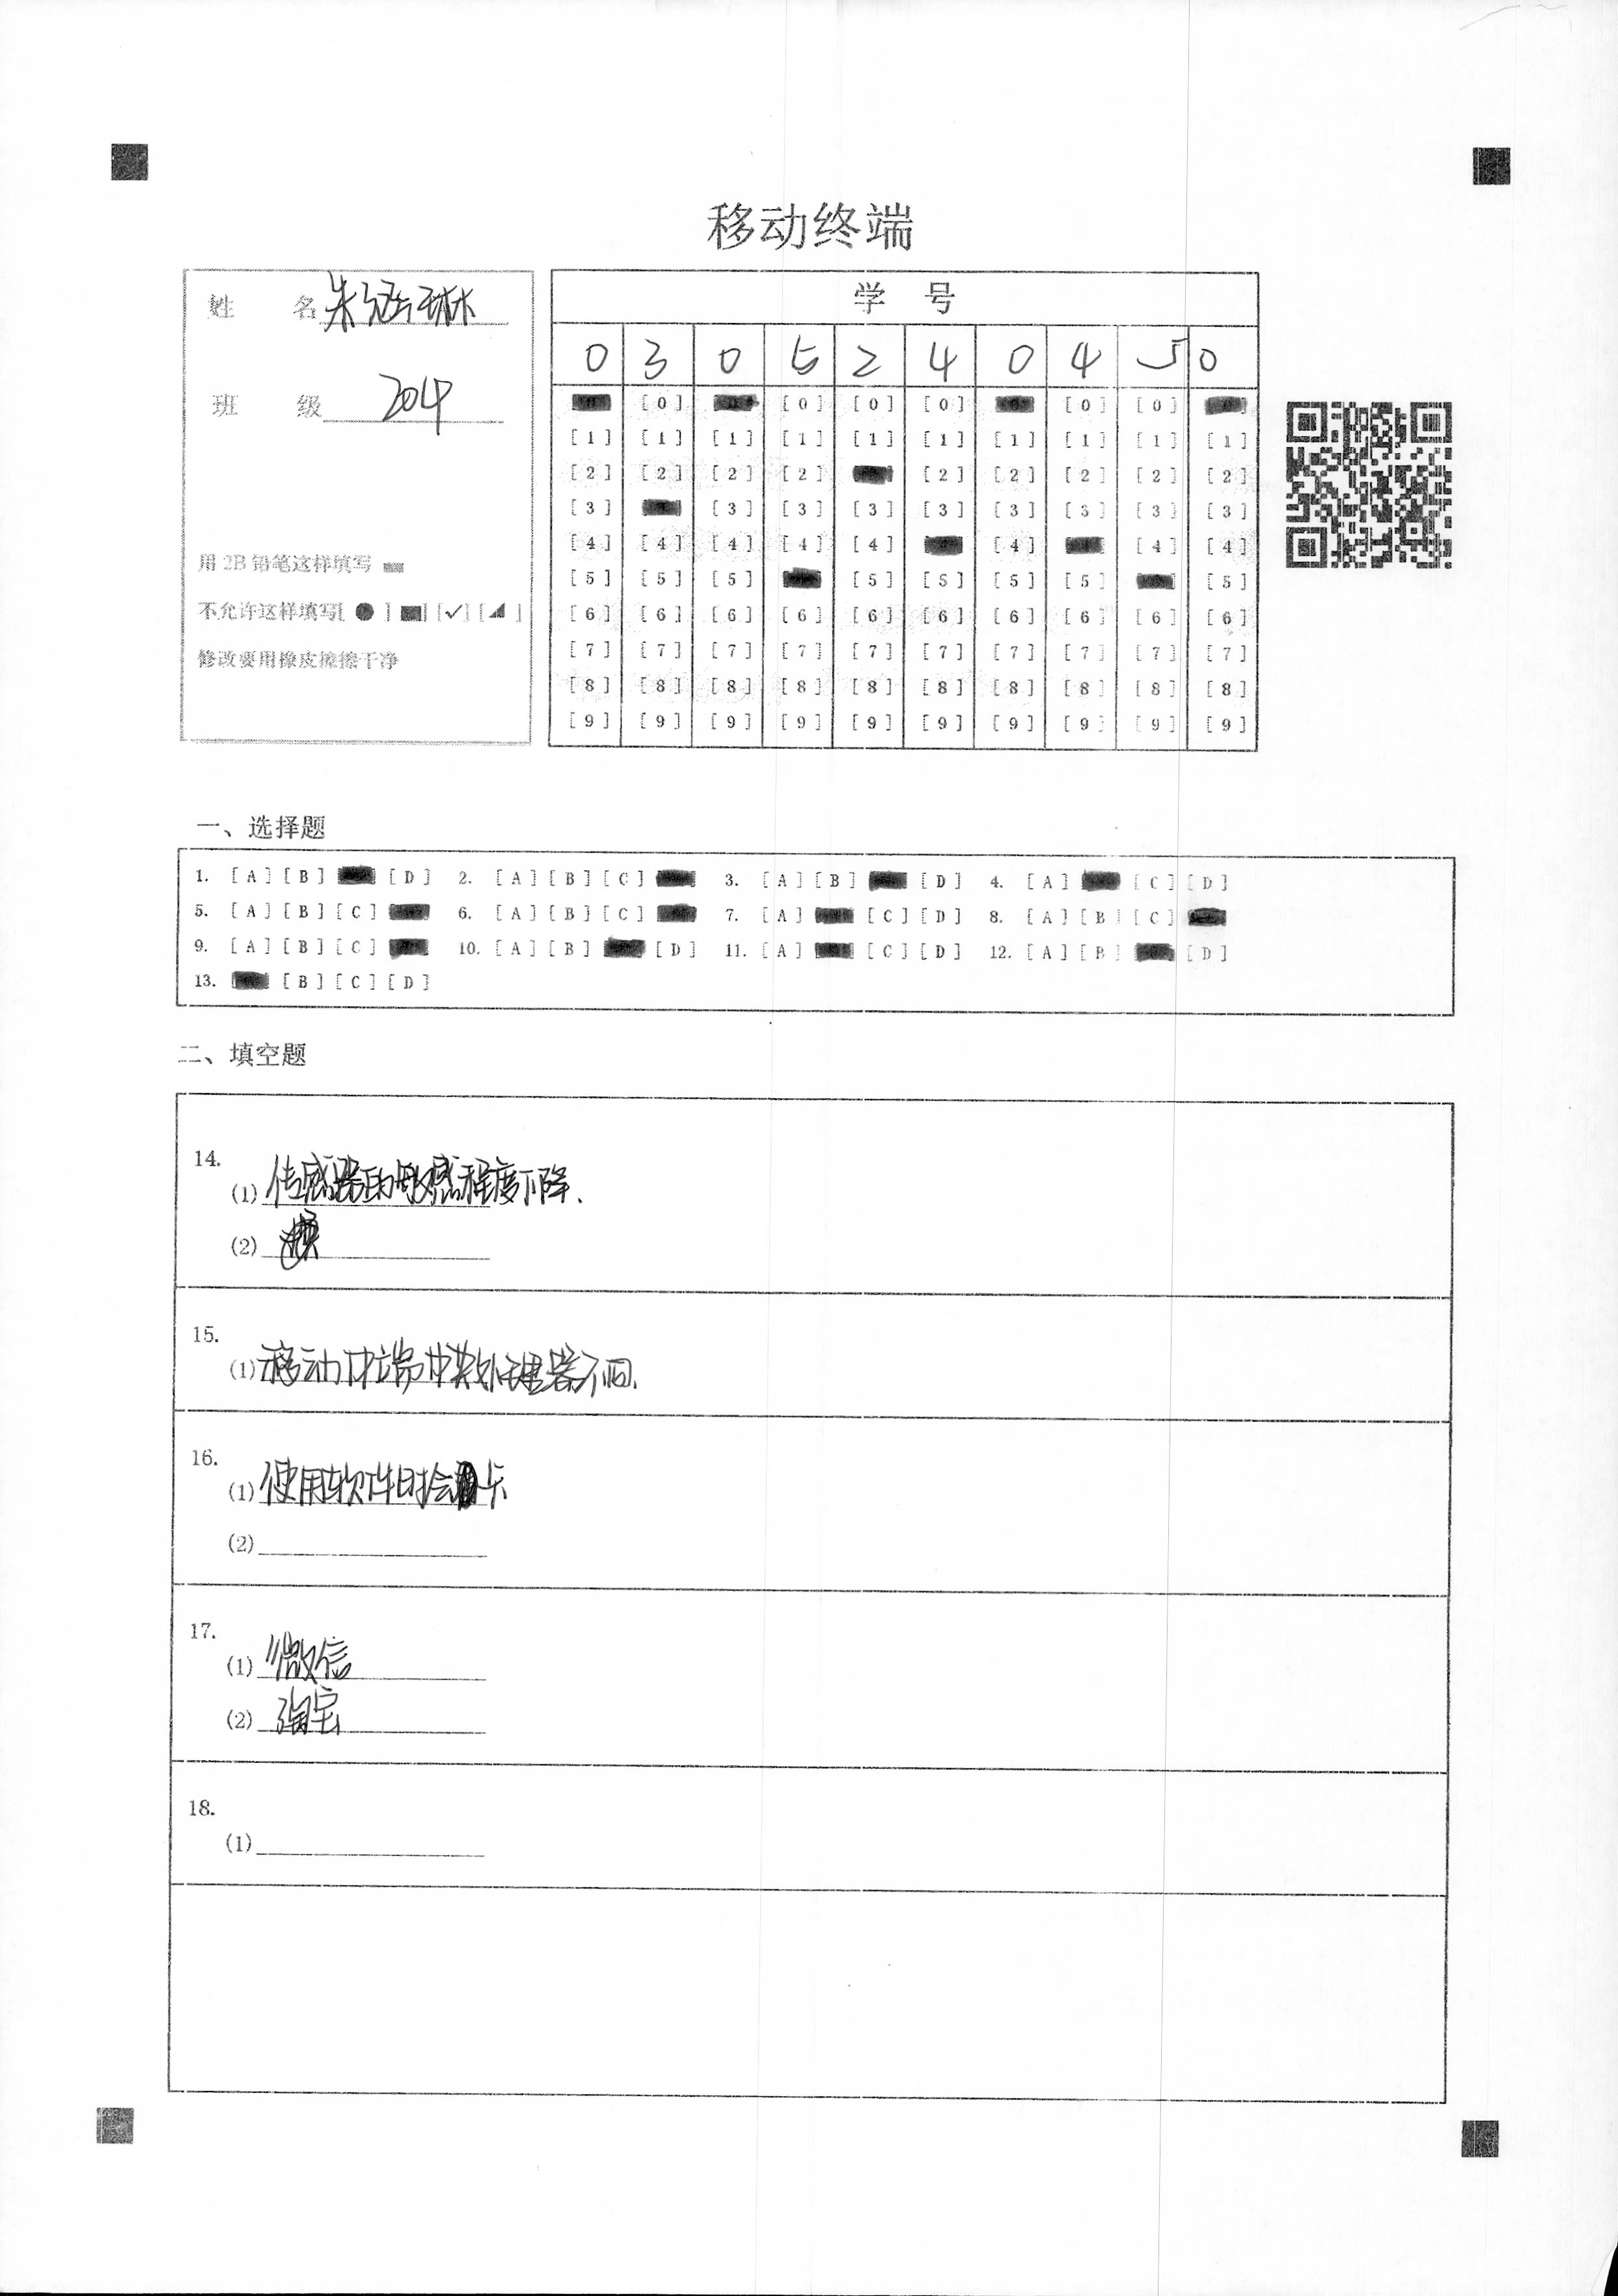 移动终端
姓 名 朱涵琳
班 级 2014
用 2B 铅笔这样填写
不允许这样填写[ ● ] [ ■] [✓] [◢ ]
修改要用橡皮擦擦干净
学 号
0 3 0 5 2 4 0 4 5 0
[0] [0] [0] [0] [0] [0]
[1] [1] [1] [1] [1] [1] [1] [1] [1] [1]
[2] [2] [2] [2] [2] [2] [2] [2] [2]
[3] [3] [3] [3] [3] [3] [3] [3] [3]
[4] [4] [4] [4] [4] [4] [4] [4]
[5] [5] [5] [5] [5] [5] [5] [5]
[6] [6] [6] [6] [6] [6] [6] [6] [6] [6]
[7] [7] [7] [7] [7] [7] [7] [7] [7] [7]
[8] [8] [8] [8] [8] [8] [8] [8] [8] [8]
[9] [9] [9] [9] [9] [9] [9] [9] [9] [9]
一、选择题
1. [A] [B] [D] 2. [A] [B] [C] 3. [A] [B] [D] 4. [A] [C] [D]
5. [A] [B] [C] 6. [A] [B] [C] 7. [A] [C] [D] 8. [A] [B] [C]
9. [A] [B] [C] 10. [A] [B] [D] 11. [A] [C] [D] 12. [A] [B] [D]
13. [B] [C] [D]
二、填空题
14.
(1) 传感器的敏感程度下降.
(2)
15.
(1) 移动终端中央处理器不同.
16.
(1) 使用软件时会卡
(2)
17.
(1) 微信
(2) 淘宝
18.
(1)